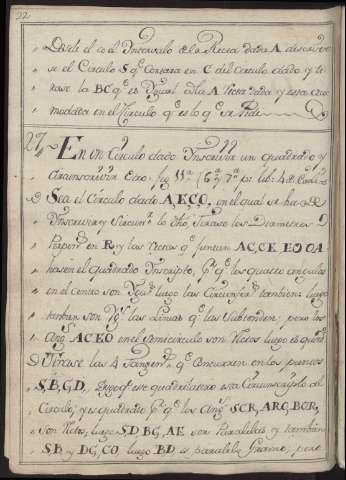 92
Desde el o el Intervalo de la Recta dada A descrivir
se el Circulo S q.e Cortara en C del circulo dado y ti
rase la BC q.e es Ygual a la A Recta dada y esta aco
modada en el Circulo q.e es lo q.e se Pide
27 En Un Circulo dado Inscrivir un quadrado y
circunscrivir Otro. fig 11.a (6.a y 7.a p.i lib. 4. de Eucli.s
Sea el Circulo dado A, E, C, O, en el qual se ha de
Inscrivir y Circun.r lo dho, Tirase los Diametros
Perpen.s en R y las rectas q.e juntan AC, CE EO OA
hacen el quadrado Inscripto, P.r q.e los quatro angulos
en el centro son Yg.s luego las Circunfer.s tambien: luego
tanbien son Yg.s las Lineas q.e las Subtenden, pero los
Ang.s ACEO en el Semicirculo son Rectos luego es quad.o
Tirase las 4 Tangen.s q.e Concurren en los puntos
S, B, G, D, Digo q.e este quadrilatero esta Circunscripto al
Circulo, y es quadrado P.r q.e los Ang.s SCR, ARG, BCR,
son Rectos, luego S, D BG, AE son Paralelas y tambien
S, B y DG, CO, luego BD es paralelo Gramo, pero